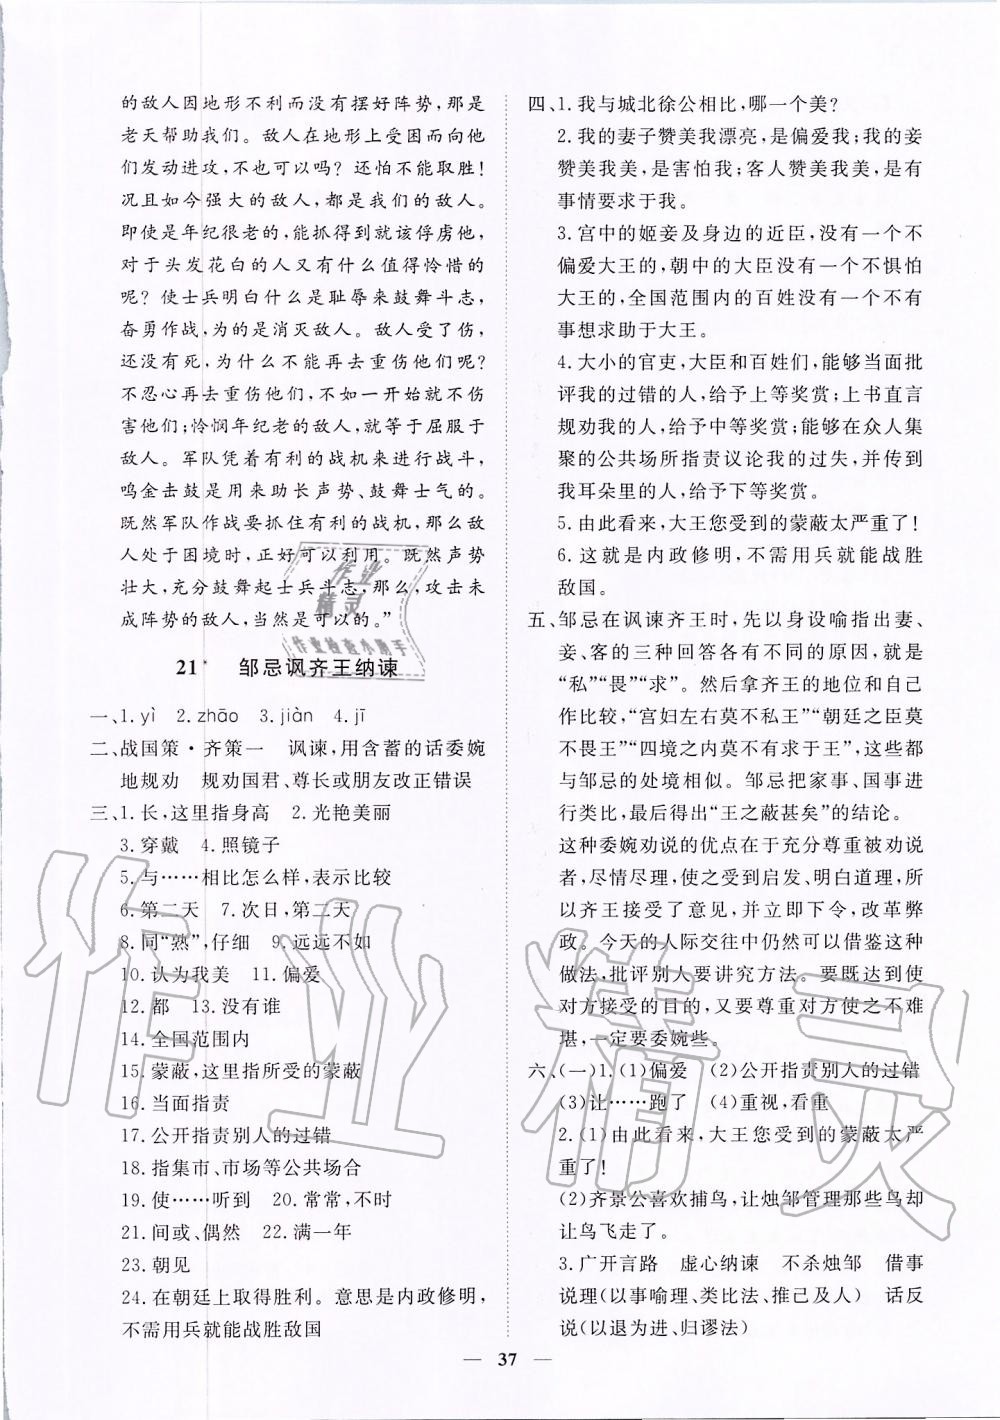 的敌人因地形不利而没有摆好阵势，那是
老天帮助我们。敌人在地形上受困而向他
们发动进攻，不也可以吗？还怕不能取胜！
况且如今强大的敌人，都是我们的敌人。
即使是年纪很老的，能抓得到就该俘虏他，
对于头发花白的人又有什么值得怜惜的
呢？使士兵明白什么是耻辱来鼓舞斗志，
奋勇作战，为的是消灭敌人。敌人受了伤，
还没有死，为什么不能再去重伤他们呢？
不忍心再去重伤他们，不如一开始就不伤
害他们；怜悯年纪老的敌人，就等于屈服于
敌人。军队凭着有利的战机来进行战斗，
鸣金击鼓是用来助长声势、鼓舞士气的。
既然军队作战要抓住有利的战机，那么敌
人处于困境时，正好可以利用。既然声势
壮大，充分鼓舞起士兵斗志，那么，攻击未
成阵势的敌人，当然是可以的。”
21* 邹忌讽齐王纳谏
一、1. yì 2. zhāo 3. jiàn 4. jī
二、战国策·齐策一 讽谏，用含蓄的话委婉
地规劝 规劝国君、尊长或朋友改正错误
三、1. 长，这里指身高 2. 光艳美丽
3. 穿戴 4. 照镜子
5. 与……相比怎么样，表示比较
6. 第二天 7. 次日，第二天
8. 同“熟”，仔细 9. 远远不如
10. 认为我美 11. 偏爱
12. 都 13. 没有谁
14. 全国范围内
15. 蒙蔽，这里指所受的蒙蔽
16. 当面指责
17. 公开指责别人的过错
18. 指集市、市场等公共场合
19. 使……听到 20. 常常，不时
21. 间或、偶然 22. 满一年
23. 朝见
24. 在朝廷上取得胜利。意思是内政修明，
不需用兵就能战胜敌国
四、1. 我与城北徐公相比，哪一个美？
2. 我的妻子赞美我漂亮，是偏爱我；我的妾
赞美我美，是害怕我；客人赞美我美，是有
事情要求于我。
3. 宫中的姬妾及身边的近臣，没有一个不
偏爱大王的，朝中的大臣没有一个不惧怕
大王的，全国范围内的百姓没有一个不有
事想求助于大王。
4. 大小的官吏，大臣和百姓们，能够当面批
评我的过错的人，给予上等奖赏；上书直言
规劝我的人，给予中等奖赏；能够在众人集
聚的公共场所指责议论我的过失，并传到
我耳朵里的人，给予下等奖赏。
5. 由此看来，大王您受到的蒙蔽太严重了！
6. 这就是内政修明，不需用兵就能战胜
敌国。
五、邹忌在讽谏齐王时，先以身设喻指出妻、
妾、客的三种回答各有不同的原因，就是
“私”“畏”“求”。然后拿齐王的地位和自己
作比较，“宫妇左右莫不私王”“朝廷之臣莫
不畏王”“四境之内莫不有求于王”，这些都
与邹忌的处境相似。邹忌把家事、国事进
行类比，最后得出“王之蔽甚矣”的结论。
这种委婉劝说的优点在于充分尊重被劝说
者，尽情尽理，使之受启发、明白道理，所
以齐王接受了意见，并立即下令，改革弊
政。今天的人际交往中仍然可以借鉴这种
做法，批评别人要讲究方法。要既达到使
对方接受的目的，又要尊重对方使之不难
堪，一定要委婉些。
六、(一)1. (1)偏爱 (2)公开指责别人的过错
(3)让……跑了 (4)重视，看重
2. (1)由此看来，大王您受到的蒙蔽太严
重了！
(2)齐景公喜欢捕鸟，让烛邹管理那些鸟却
让鸟飞走了。
3. 广开言路 虚心纳谏 不杀烛邹 借事
说理(以事喻理、类比法、推己及人) 话反
说(以退为进、归谬法)
— 37 —
作业
精灵
作业检查小助手
作业精灵